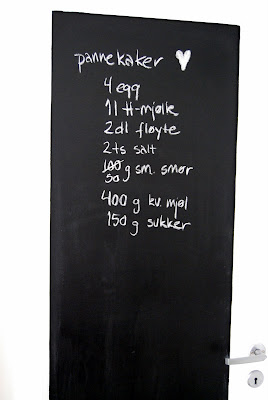 pannekaker
4 egg
1 l H-mjølk
2dl fløyte
2 ts salt
100
50 g sm. smør
400 g kv. mjøl
150 g sukker